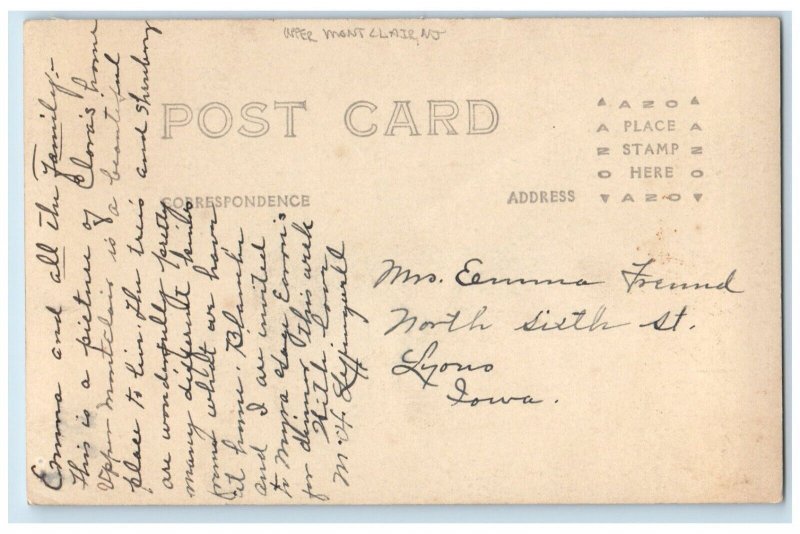 UPPER MONTCLAIR, NJ
POST CARD
CORRESPONDENCE
ADDRESS
AZO
PLACE
STAMP
HERE
AZO
Emma and all the Family:-
This is a picture of Clora's home
Upper Montclair is a beautiful
place to live. The trees and shrubery
are wonderfully pretty
many different kinds
from what we have
at home. Blanche
and I are invited
to Myra Gage
for dinner this week
With Love
M. H. Leffingwell
Mrs. Eemma Freund
North Sixth St.
Lyons
Iowa.